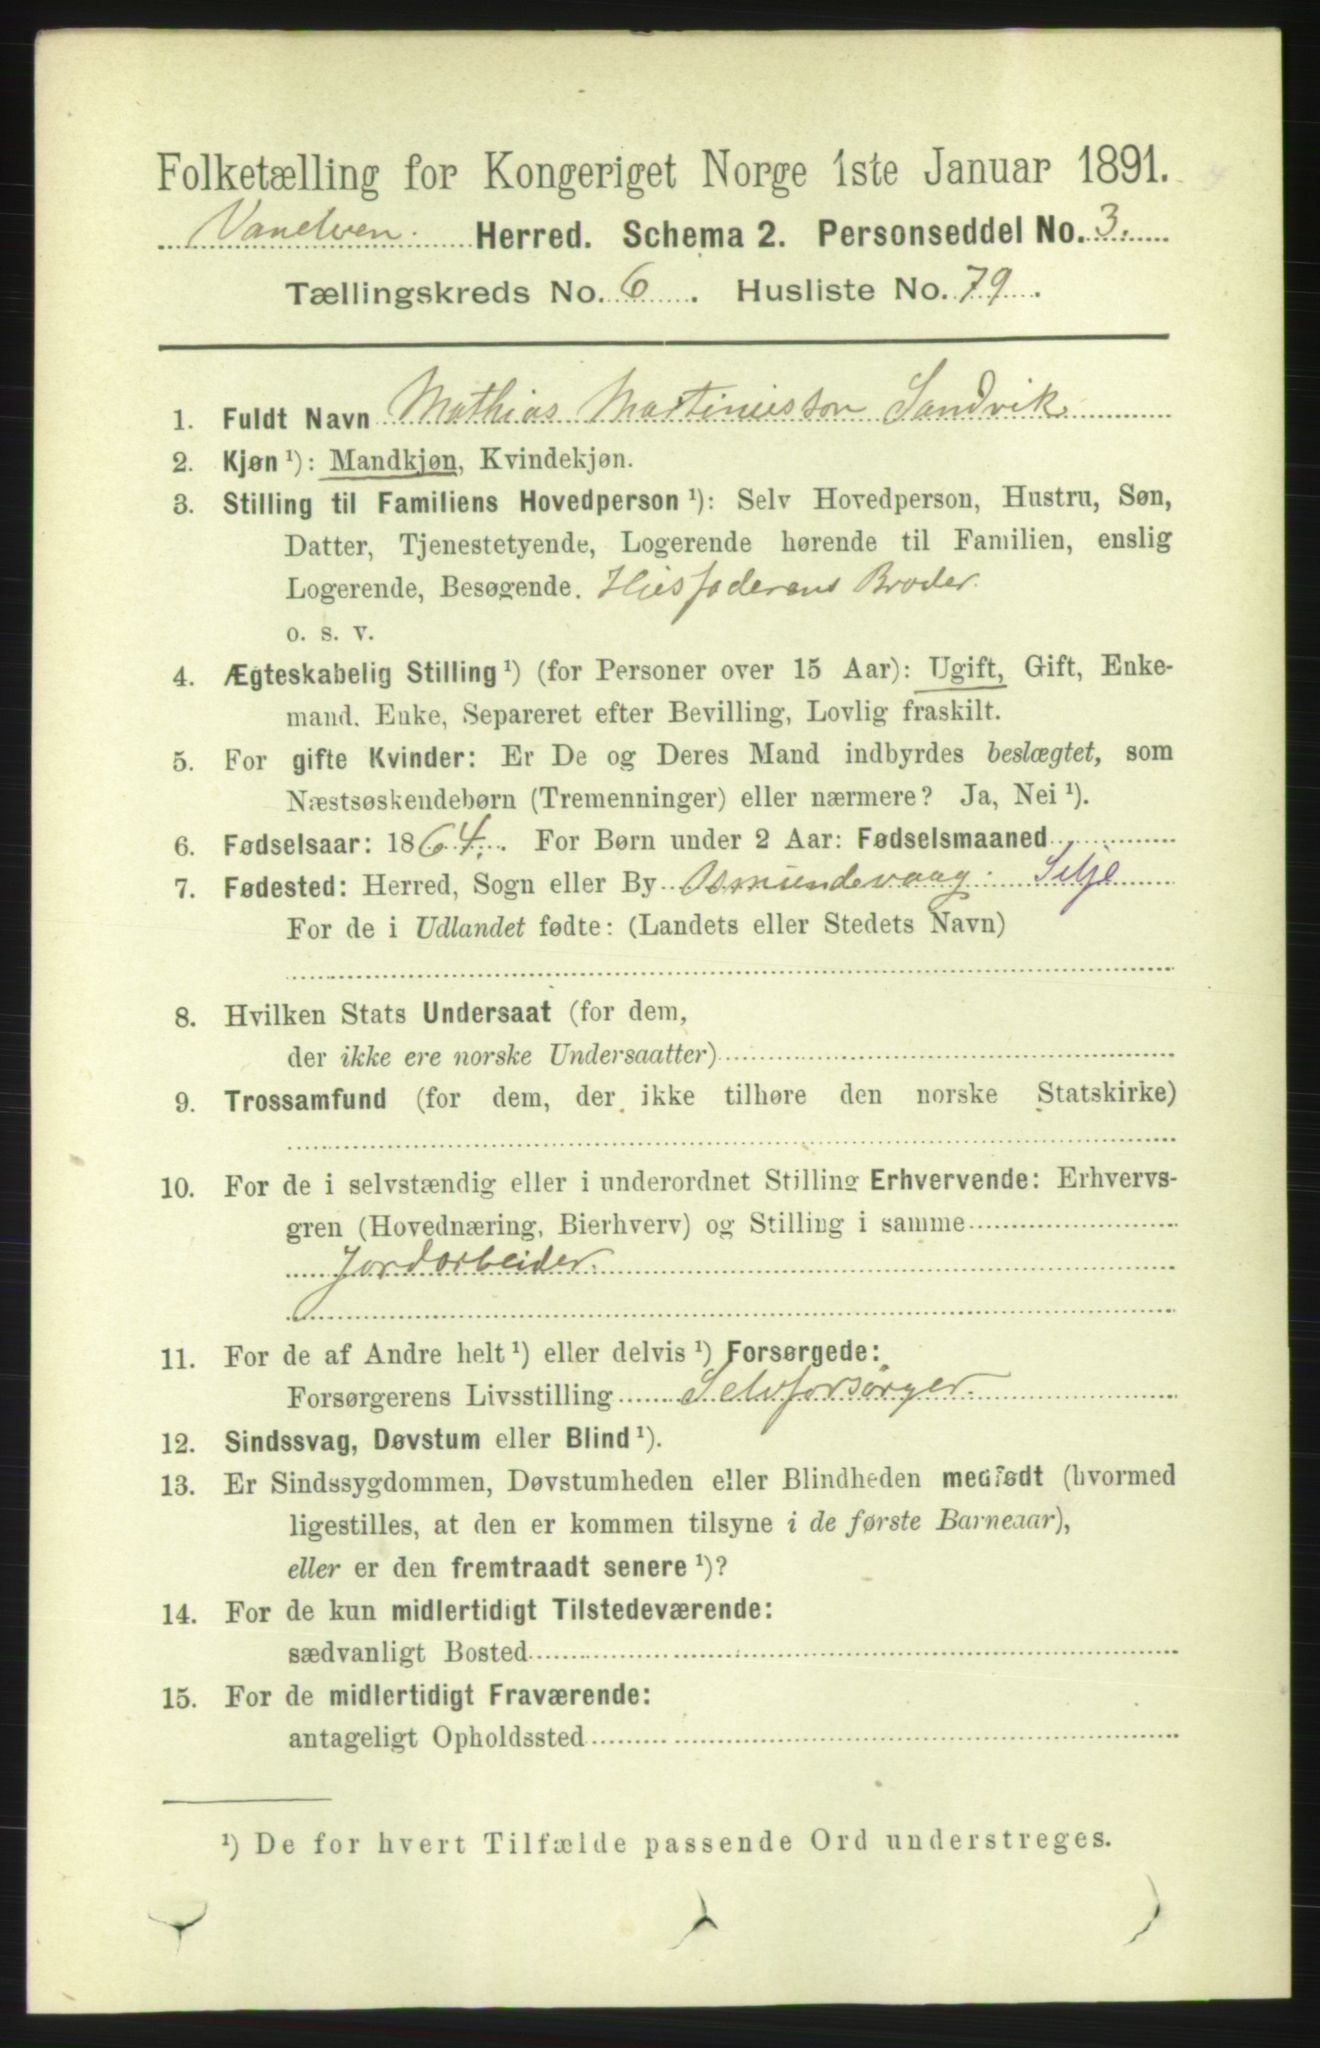 Folketælling for Kongeriget Norge 1ste Januar 1891.
Vanelven. Herred. Schema 2. Personseddel No. 3.
Tællingskreds No. 6 . Husliste No. 79 .
1. Fuldt Navn Mathias Martinusson Sandvik
2. Kjøn ¹): Mandkjøn, Kvindekjøn.
3. Stilling til Familiens Hovedperson ¹): Selv Hovedperson, Hustru, Søn,
Datter, Tjenestetyende, Logerende hørende til Familien, enslig
Logerende, Besøgende. Husfaderens Broder.
o. s. v.
4. Ægteskabelig Stilling ¹) (for Personer over 15 Aar): Ugift, Gift, Enke-
mand. Enke, Separeret efter Bevilling, Lovlig fraskilt.
5. For gifte Kvinder: Er De og Deres Mand indbyrdes beslægtet, som
Næstsøskendebørn (Tremenninger) eller nærmere? Ja, Nei ¹).
6. Fødselsaar: 1864. For Børn under 2 Aar: Fødselsmaaned
7. Fødested: Herred, Sogn eller By Osmundevaag. Selje
For de i Udlandet fødte: (Landets eller Stedets Navn)
8. Hvilken Stats Undersaat (for dem,
der ikke ere norske Undersaatter)
9. Trossamfund (for dem, der ikke tilhøre den norske Statskirke)
10. For de i selvstændig eller i underordnet Stilling Erhvervende: Erhvervs-
gren (Hovednæring, Bierhverv) og Stilling i samme
Jordarbeider.
11. For de af Andre helt ¹) eller delvis ¹) Forsørgede:
Forsørgerens Livsstilling Selvforsørger.
12. Sindssvag, Døvstum eller Blind ¹).
13. Er Sindssygdommen, Døvstumheden eller Blindheden medfødt (hvormed
ligestilles, at den er kommen tilsyne i de første Barneaar),
eller er den fremtraadt senere ¹)?
14. For de kun midlertidigt Tilstedeværende:
sædvanligt Bosted
15. For de midlertidigt Fraværende:
antageligt Opholdssted
¹) De for hvert Tilfælde passende Ord understreges.